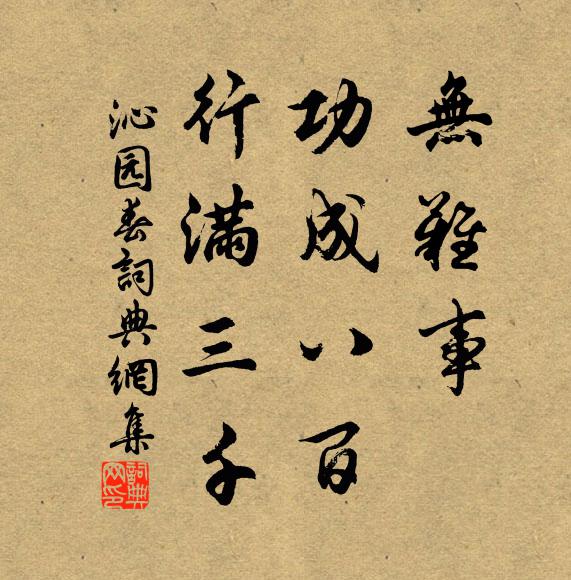 無難事
功成八百
行满三千
沁园春詞典網集
詞典网印